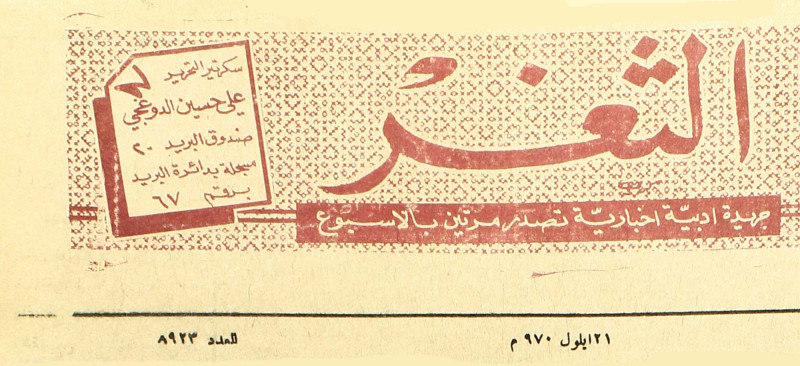 الثغر
جريدة ادبيّة اخباريّة تصدر مرتين بالاسبوع
سكرتير التحرير
علي حسين الدوغجي
صندوق البريد ٢٠
مسجلة بدائرة البريد
برقم ٦٧
٢١ ايلول ٩٧٠ م
العدد ٨٩٢٣